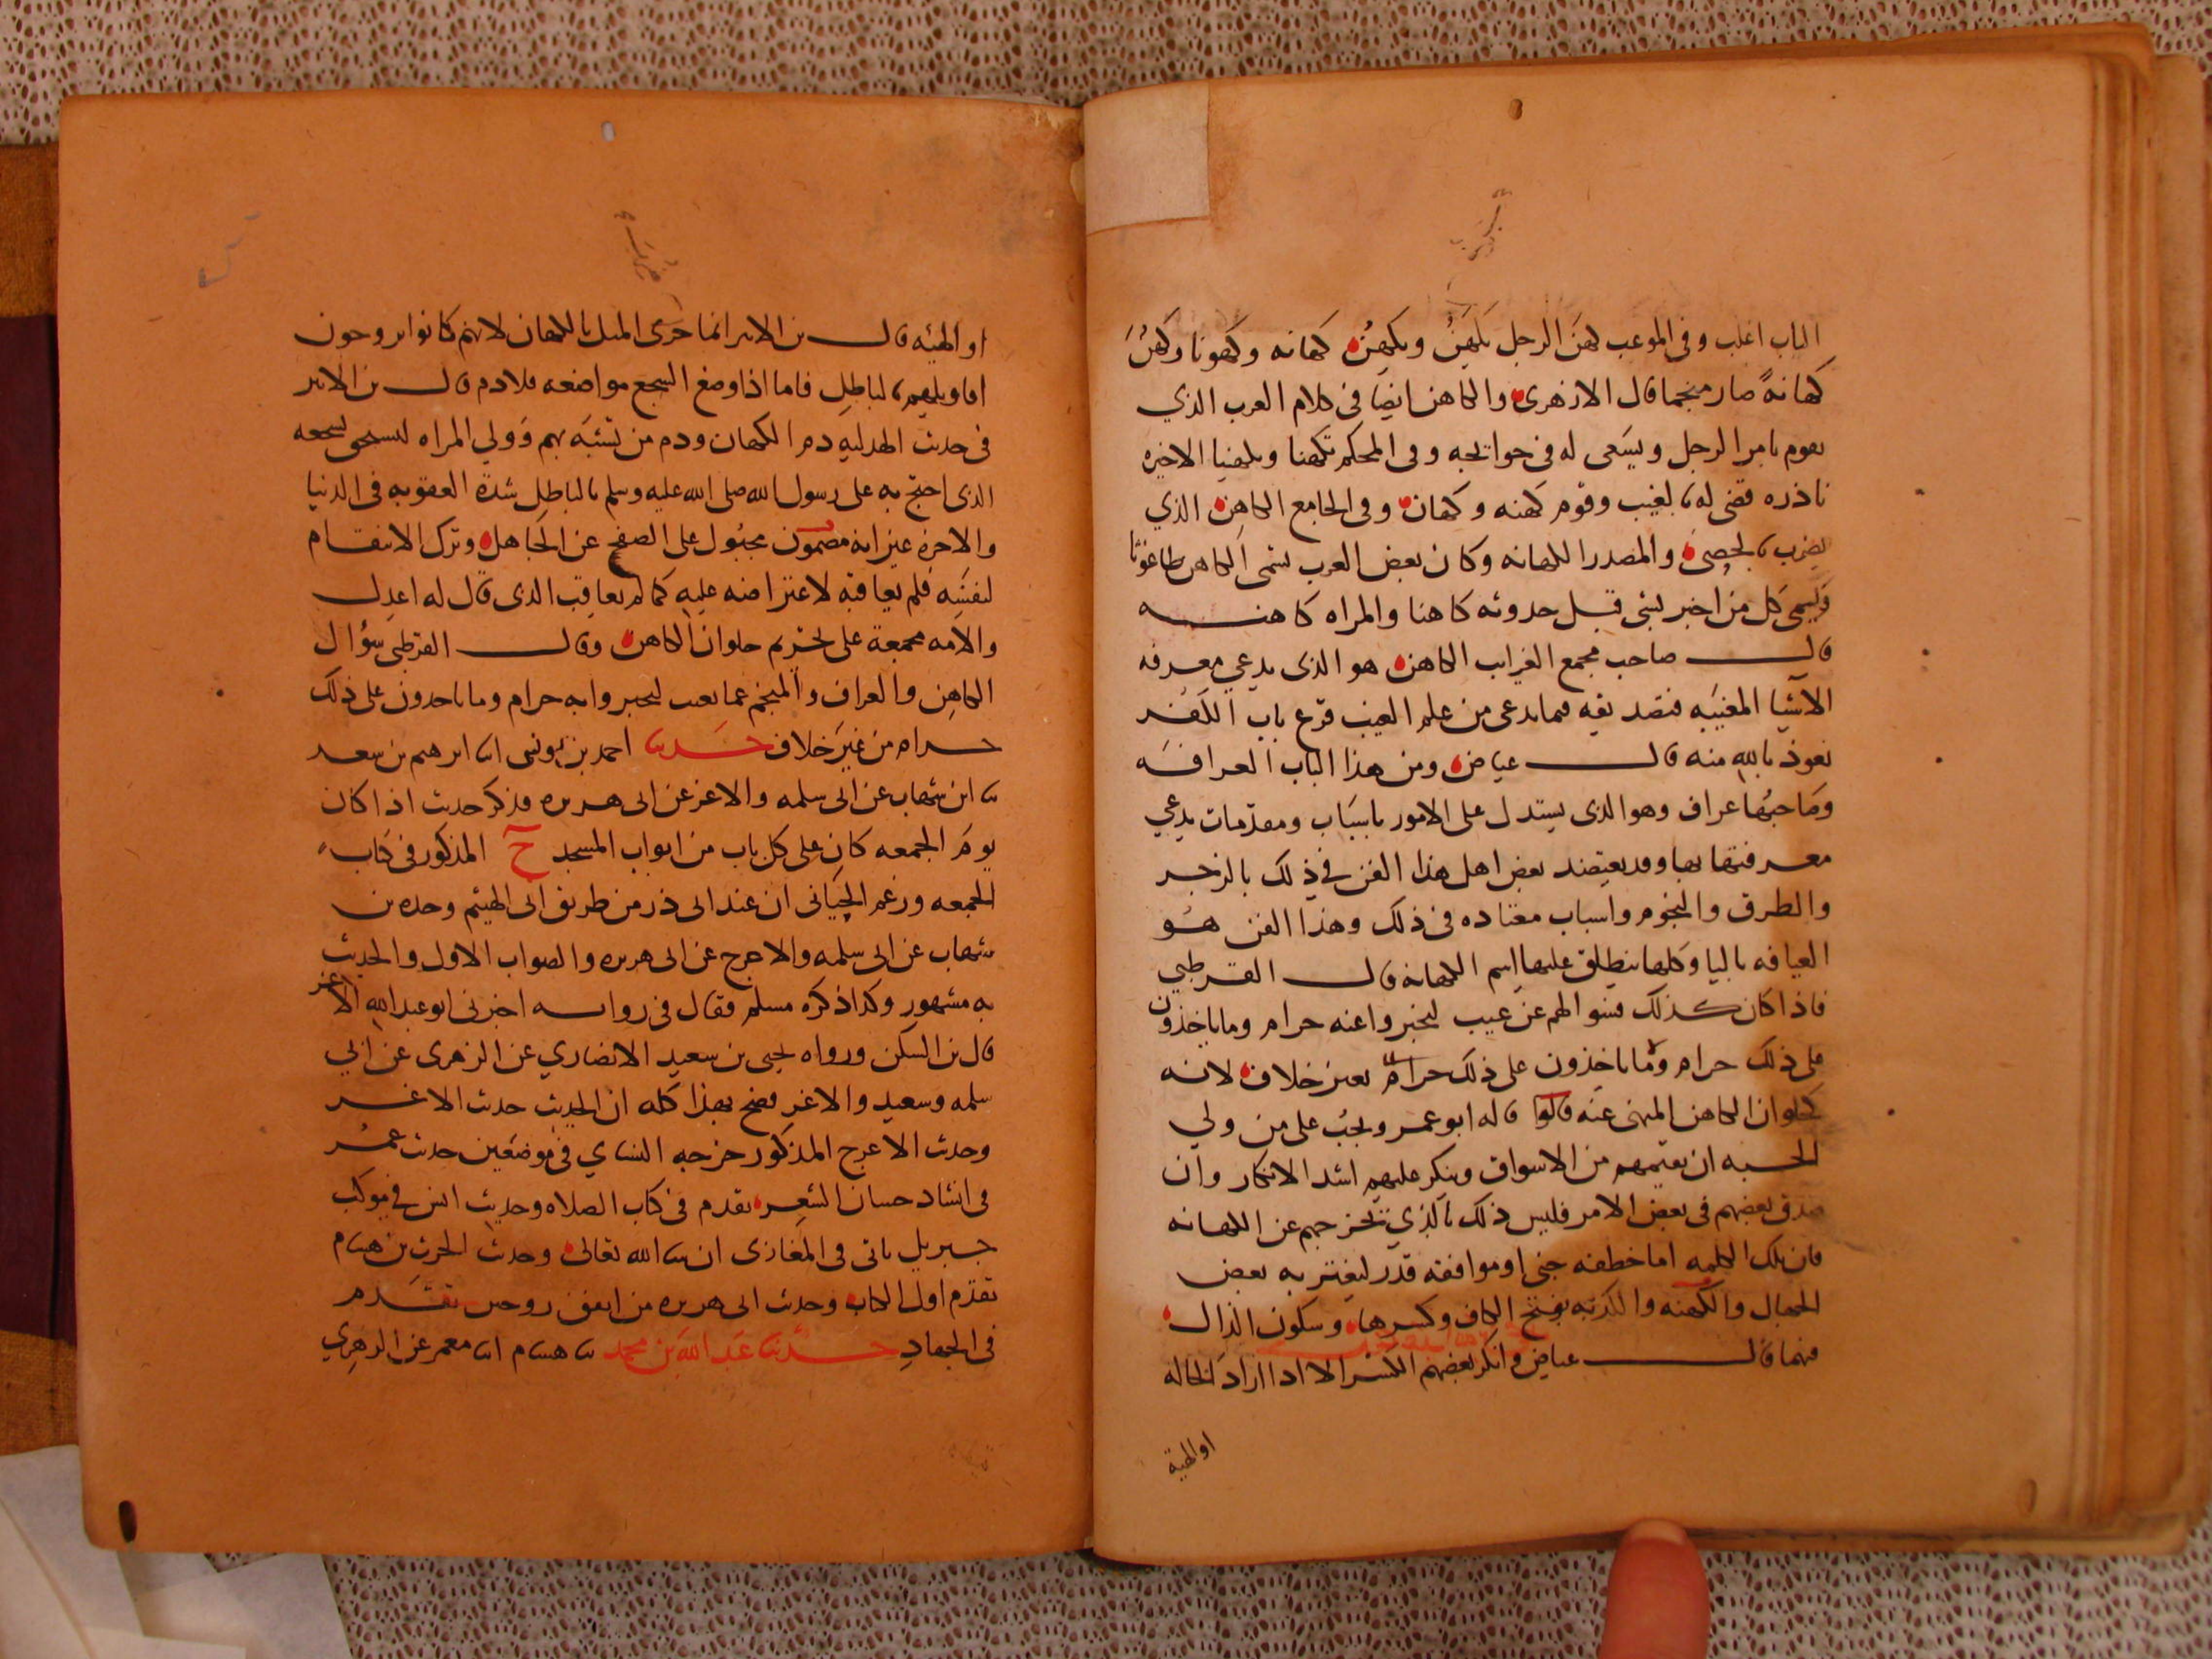 الباب اغلب وفى الموعب كهَن الرجل يَكهَنُ ويكهنُ كهانه وكهونا وكَهُنَ
كهانةً صار منجما قال الازهرى والكاهن ايضا فى كلام العرب الذي
يقوم بامر الرجل ويسَعى له فى حوائجه وفى المحكم تكهنا وتكهنيا الاخيره
نادره قضى له بالغيب وقوم كهنه وكهان وفى الجامع الكاهِن الذي
يضرب بالحصى والمصدر الكهانه وكان بعض العرب يسَمى الكاهن طاغوتا
ويسمى كل من اخبر بشى قبل حدوثه كاهنا والمراه كاهنه
قال صاحب مجمع الغرايب الكاهن هو الذى يدعي معرفه
الاشيا المغيبَه فتصديقه فيما يدعى من علم الغيب قرع باب الكفر
نعوذ بالله منه قال عياض ومن هذا الباب العرافه
وصَاحبُها عراف وهو الذى يستدل على الامور باسبَاب ومقدّمات يدعي
معرفتها بها وقد يعتضد بعض اهل هذا الفن فى ذلك بالزجر
والطرق والنجوم واسباب معتاده فى ذلك وهذا الفن هُو
العيافه باليا وكلها ينطلق عليها اسم الكهانه قال القرطبي
فاذا كان كذلك فسوالهم عن غيب ليخبروا عنه حرام وما ياخذون
على ذلك حرام وما ياخذون على ذلك حرام بغير خلاف لانه
حُلوان الكاهن المنهى عنه قالوا قاله ابو عمر ويجبُ على من ولي
الحسبه ان يقيمهم من الاسواق وينكر عليهم اشد الانكار وان
صدق بعضهم فى بعض الامر فليس ذلك بالذي يخرجهم عن الكهانه
فان تلك الكلمه اما خطفه جنى او موافقه قدر ليغتر به بعض
الجهال والكهنه والكذبه بفتح الكاف وكسرها وسكون الذال
فيهما قال عياض وانكر بعضهم الكسر الا اذا اراد الحاله
او الهية
او الهيئه قال بن الاثير انما جرى المثل بالكهان لانهم كانوا يروجون
اقاويلهم بالباطِل فاما اذا وضع السجع مواضعه فلا ذم قال بن الاثير
فى حديث الهدليه ذم الكهان وذم من تشبَّه بهم فى ولي المراه بسجعه
الذى احتج به على رسول الله صلى الله عليه وسلم بالباطِل شدّة العقوبه فى الدنيا
والاخره غير انه مجبُول على الصفح عن الجَاهل وترك الانتقام
لنفسَه فلم يعاقبه لاعتراضه عليه كما لم يعاقب الذى قال له اعدل
والامه مجمعة على تحريم حلوان الكاهن وقال القرطبى سؤال
الكاهِن والعراف والمنجم عما يغيب ليخبروا به حرام وما ياخذون على ذلك
حرام من غير خلاف حدثنا احمد بن يونس انا ابرهيم بن سعد
نا ابن شهاب عن ابى سلمه والاغر عن ابى هريره فذكر حديث اذا كان
يومَ الجمعه كان على كل باب من ابواب المسجد ح المذكور فى كتاب
الجمعه وزعم الجيَانى ان عند ابى ذر من طريق ابى الهيثم وحده بن
شهاب عن ابى سلمه والاعرج عن ابى هريره والصواب الاول والحديث
به مشهور وكذا ذكره مسلم فقال فى روايته اخبرنى ابو عبد الله الاغر
قال بن السكن ورواه يحيى بن سعيد الانصاري عن الزهرى عن ابي
سلمه وسعيد والاغر فصح بهذا كله ان الحديث حديث الاغر
وحديث الاعرج المذكور خرجه النساي فى موضعين حديث عُمر
فى انشاد حسان الشعر تقدم فى كتاب الصلاه وحديث انس فى موكب
جبريل ياتى فى المغازى ان شا الله تعالى وحديث الحرث بن هشام
تقدّم اول الكتاب وحديث ابى هريره من انفق زوجين تقدم
فى الجهادِ حدثنا عَبد الله بن محمد نا هشام انا معمر عن الزهري